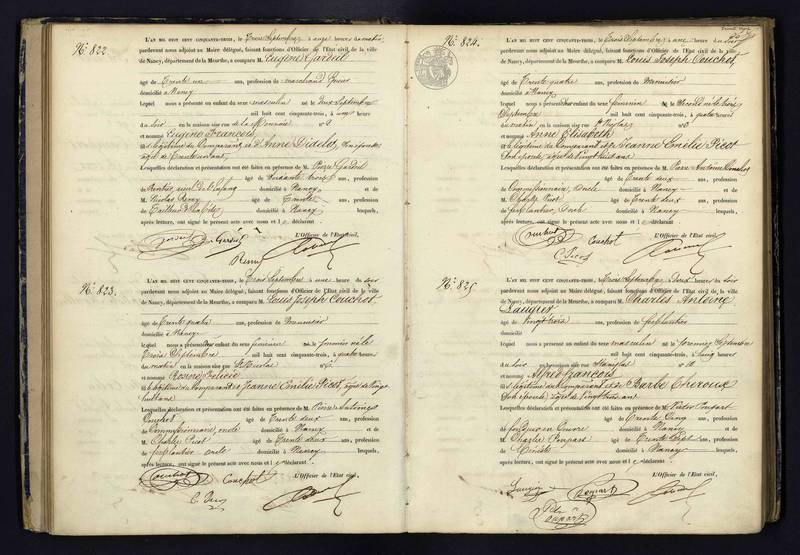 N.º 822.
L'AN MIL HUIT CENT CINQUANTE-TROIS, le Trois Septembre à onze heures du matin
pardevant nous adjoint au Maire délégué, faisant fonctions d'Officier de l'État civil de la ville
de Nancy, département de la Meurthe, a comparu M. Eugène Gardeil
âgé de Trente un ans, profession de marchand
domicilié à Nancy
lequel nous a présenté un enfant du sexe masculin né le deux Septembre
mil huit cent cinquante-trois, à heure
du soir en la maison sise rue de la Monnaie
et nommé Eugène François,
fils légitime du Comparant et d'Anne Didelot, son épouse
âgée de Trente un ans,
Lesquelles déclaration et présentation ont été faites en présence de M. Pierre Gardeil
âgé de ans, profession
de Rentier, aïeul de l'enfant domicilié à Nancy et de
M. Nicolas Remy âgé de Trente ans, profession
de Tailleur d'habits domicilié à Nancy lesquels,
après lecture, ont signé le présent acte avec nous et le déclarant.
L'Officier de l'État civil,
Remy
N.º 823.
L'AN MIL HUIT CENT CINQUANTE-TROIS, le Trois Septembre à une heure du soir
pardevant nous adjoint au Maire délégué, faisant fonctions d'Officier de l'État civil de la ville
de Nancy, département de la Meurthe, a comparu M. Louis Joseph Couchot
âgé de Trente quatre ans, profession de Menuisier
domicilié à Nancy
lequel nous a présenté un enfant du sexe féminin né le
Trois Septembre mil huit cent cinquante-trois, à quatre heures
du matin en la maison sise rue St Nicolas
et nommé Rosine
fille légitime du Comparant et de Jeanne Emélie Picot, âgée de vingt
huit ans
Lesquelles déclaration et présentation ont été faites en présence de M. Pierre Antoine
Couchot âgé de Trente deux ans, profession
de Commissionnaire, oncle domicilié à Nancy et de
M. Charles Picot âgé de Trente deux ans, profession
de ferblantier oncle domicilié à Nancy lesquels,
après lecture, ont signé le présent acte avec nous et le déclarant.
L'Officier de l'État civil,
Couchot Couchot
N.º 824.
L'AN MIL HUIT CENT CINQUANTE-TROIS, le Trois Septembre à une heure du soir
pardevant nous adjoint au Maire délégué, faisant fonctions d'Officier de l'État civil de la ville
de Nancy, département de la Meurthe, a comparu M. Louis Joseph Couchot,
âgé de Trente quatre ans, profession de Menuisier
domicilié à Nancy
lequel nous a présenté un enfant du sexe féminin né le
Septembre mil huit cent cinquante-trois, à quatre heures
du matin en la maison sise rue St Nicolas
et nommé Anne Elisabeth
fille légitime du Comparant et de Jeanne Emélie Picot
son épouse, âgée de vingt huit ans
Lesquelles déclaration et présentation ont été faites en présence de M. Pierre Antoine Couchot
âgé de Trente deux ans, profession
de Commissionnaire, oncle domicilié à Nancy et de
M. Charles Picot âgé de Trente deux ans, profession
de ferblantier, oncle domicilié à Nancy lesquels,
après lecture, ont signé le présent acte avec nous et le déclarant.
L'Officier de l'État civil,
Couchot Couchot
C. Picot
N.º 825
L'AN MIL HUIT CENT CINQUANTE-TROIS, le Trois Septembre à Deux heures du soir
pardevant nous adjoint au Maire délégué, faisant fonctions d'Officier de l'État civil de la ville
de Nancy, département de la Meurthe, a comparu M. Charles Antoine
Laugier
âgé de Vingt trois ans, profession de ferblantier
domicilié à Nancy
lequel nous a présenté un enfant du sexe masculin né le premier Septembre
mil huit cent cinquante-trois, à cinq heures
du soir en la maison sise rue Stanislas
et nommé Alfred François
fils légitime du Comparant et de Barbe Theroux
son épouse, âgée de vingt trois ans
Lesquelles déclaration et présentation ont été faites en présence de M. Victor Poupart
âgé de Trente Cinq ans, profession
de domicilié à Nancy et de
M. Charles Poupart âgé de Trente Sept ans, profession
de Ebéniste domicilié à Nancy lesquels,
après lecture, ont signé le présent acte avec nous et le déclarant.
L'Officier de l'État civil,
Laugier Poupart
Poupart